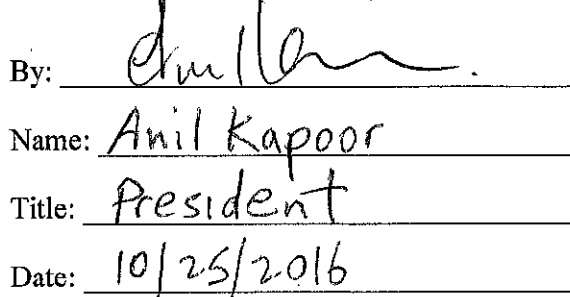 By:
Name: Anil Kapoor
Title: President
Date: 10/25/2016